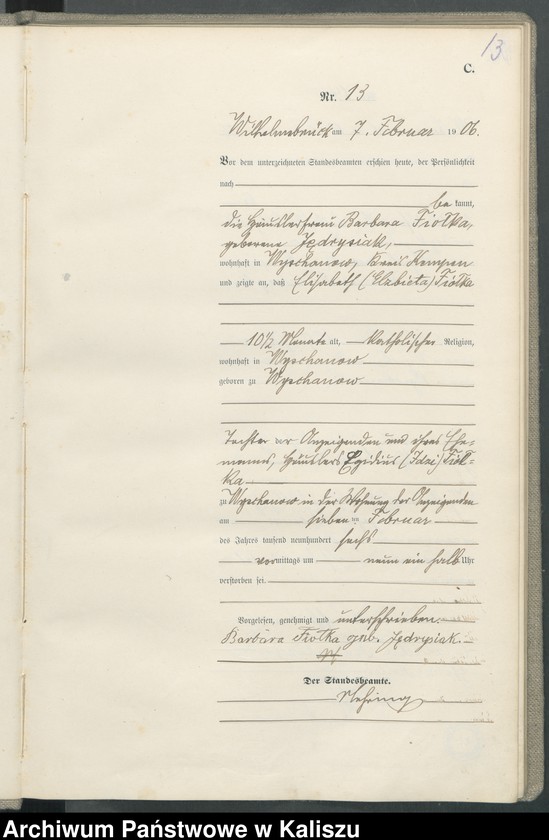 13
C.
Nr. 13
Wilhelmsbrück am 7. Februar 1906.
Vor dem unterzeichneten Standesbeamten erschien heute, der Persönlichkeit
nach
be kannt,
die Häuslerfrau Barbara Fiołka,
geborene Jędrysiak,
wohnhaft in Wyschanow, Kreis Kempen
und zeigte an, daß Elisabeth (Elzbieta) Fiołka
10 1/2 Monate alt, katholischer Religion,
wohnhaft in Wyschanow
geboren zu Wyschanow
Tochter der Anzeigenden und ihres Ehe-
mannes, Häuslers Egidius (Idzi) Fioł-
ka
zu Wyschanow in der Wohnung der Anzeigenden
am sieben ten Februar
des Jahres tausend neunhundert sechs
vormittags um neun ein halb Uhr
verstorben sei.
Vorgelesen, genehmigt und unterschrieben.
Barbara Fiołka geb. Jędrysiak
Der Standesbeamte.
Nehring
Archiwum Państwowe w Kaliszu